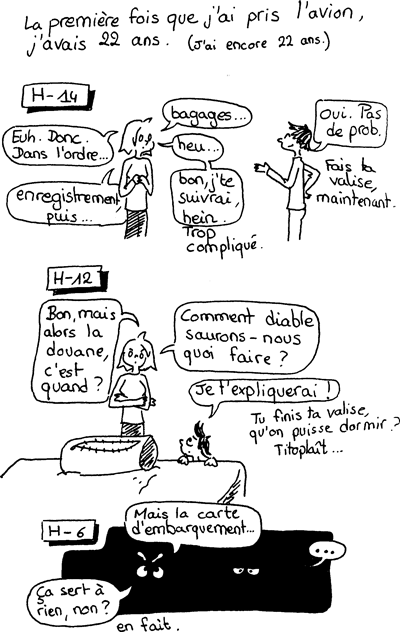 La première fois que j'ai pris l'avion,
j'avais 22 ans. (J'ai encore 22 ans.)
H-14
Euh. Donc.
Dans l'ordre...
enregistrement,
puis...
bagages...
heu...
bon, j'te
suivrai,
hein.
Trop
compliqué.
Oui. Pas
de prob.
Fais ta
valise,
maintenant.
H-12
Bon, mais
alors la
douane,
c'est
quand ?
Comment diable
saurons-nous
quoi faire ?
Je t'expliquerai !
Tu finis ta valise,
qu'on puisse dormir ?
Titoplaît...
H-6
Mais la carte
d'embarquement...
...
Ça sert à
rien, non ?
en fait.